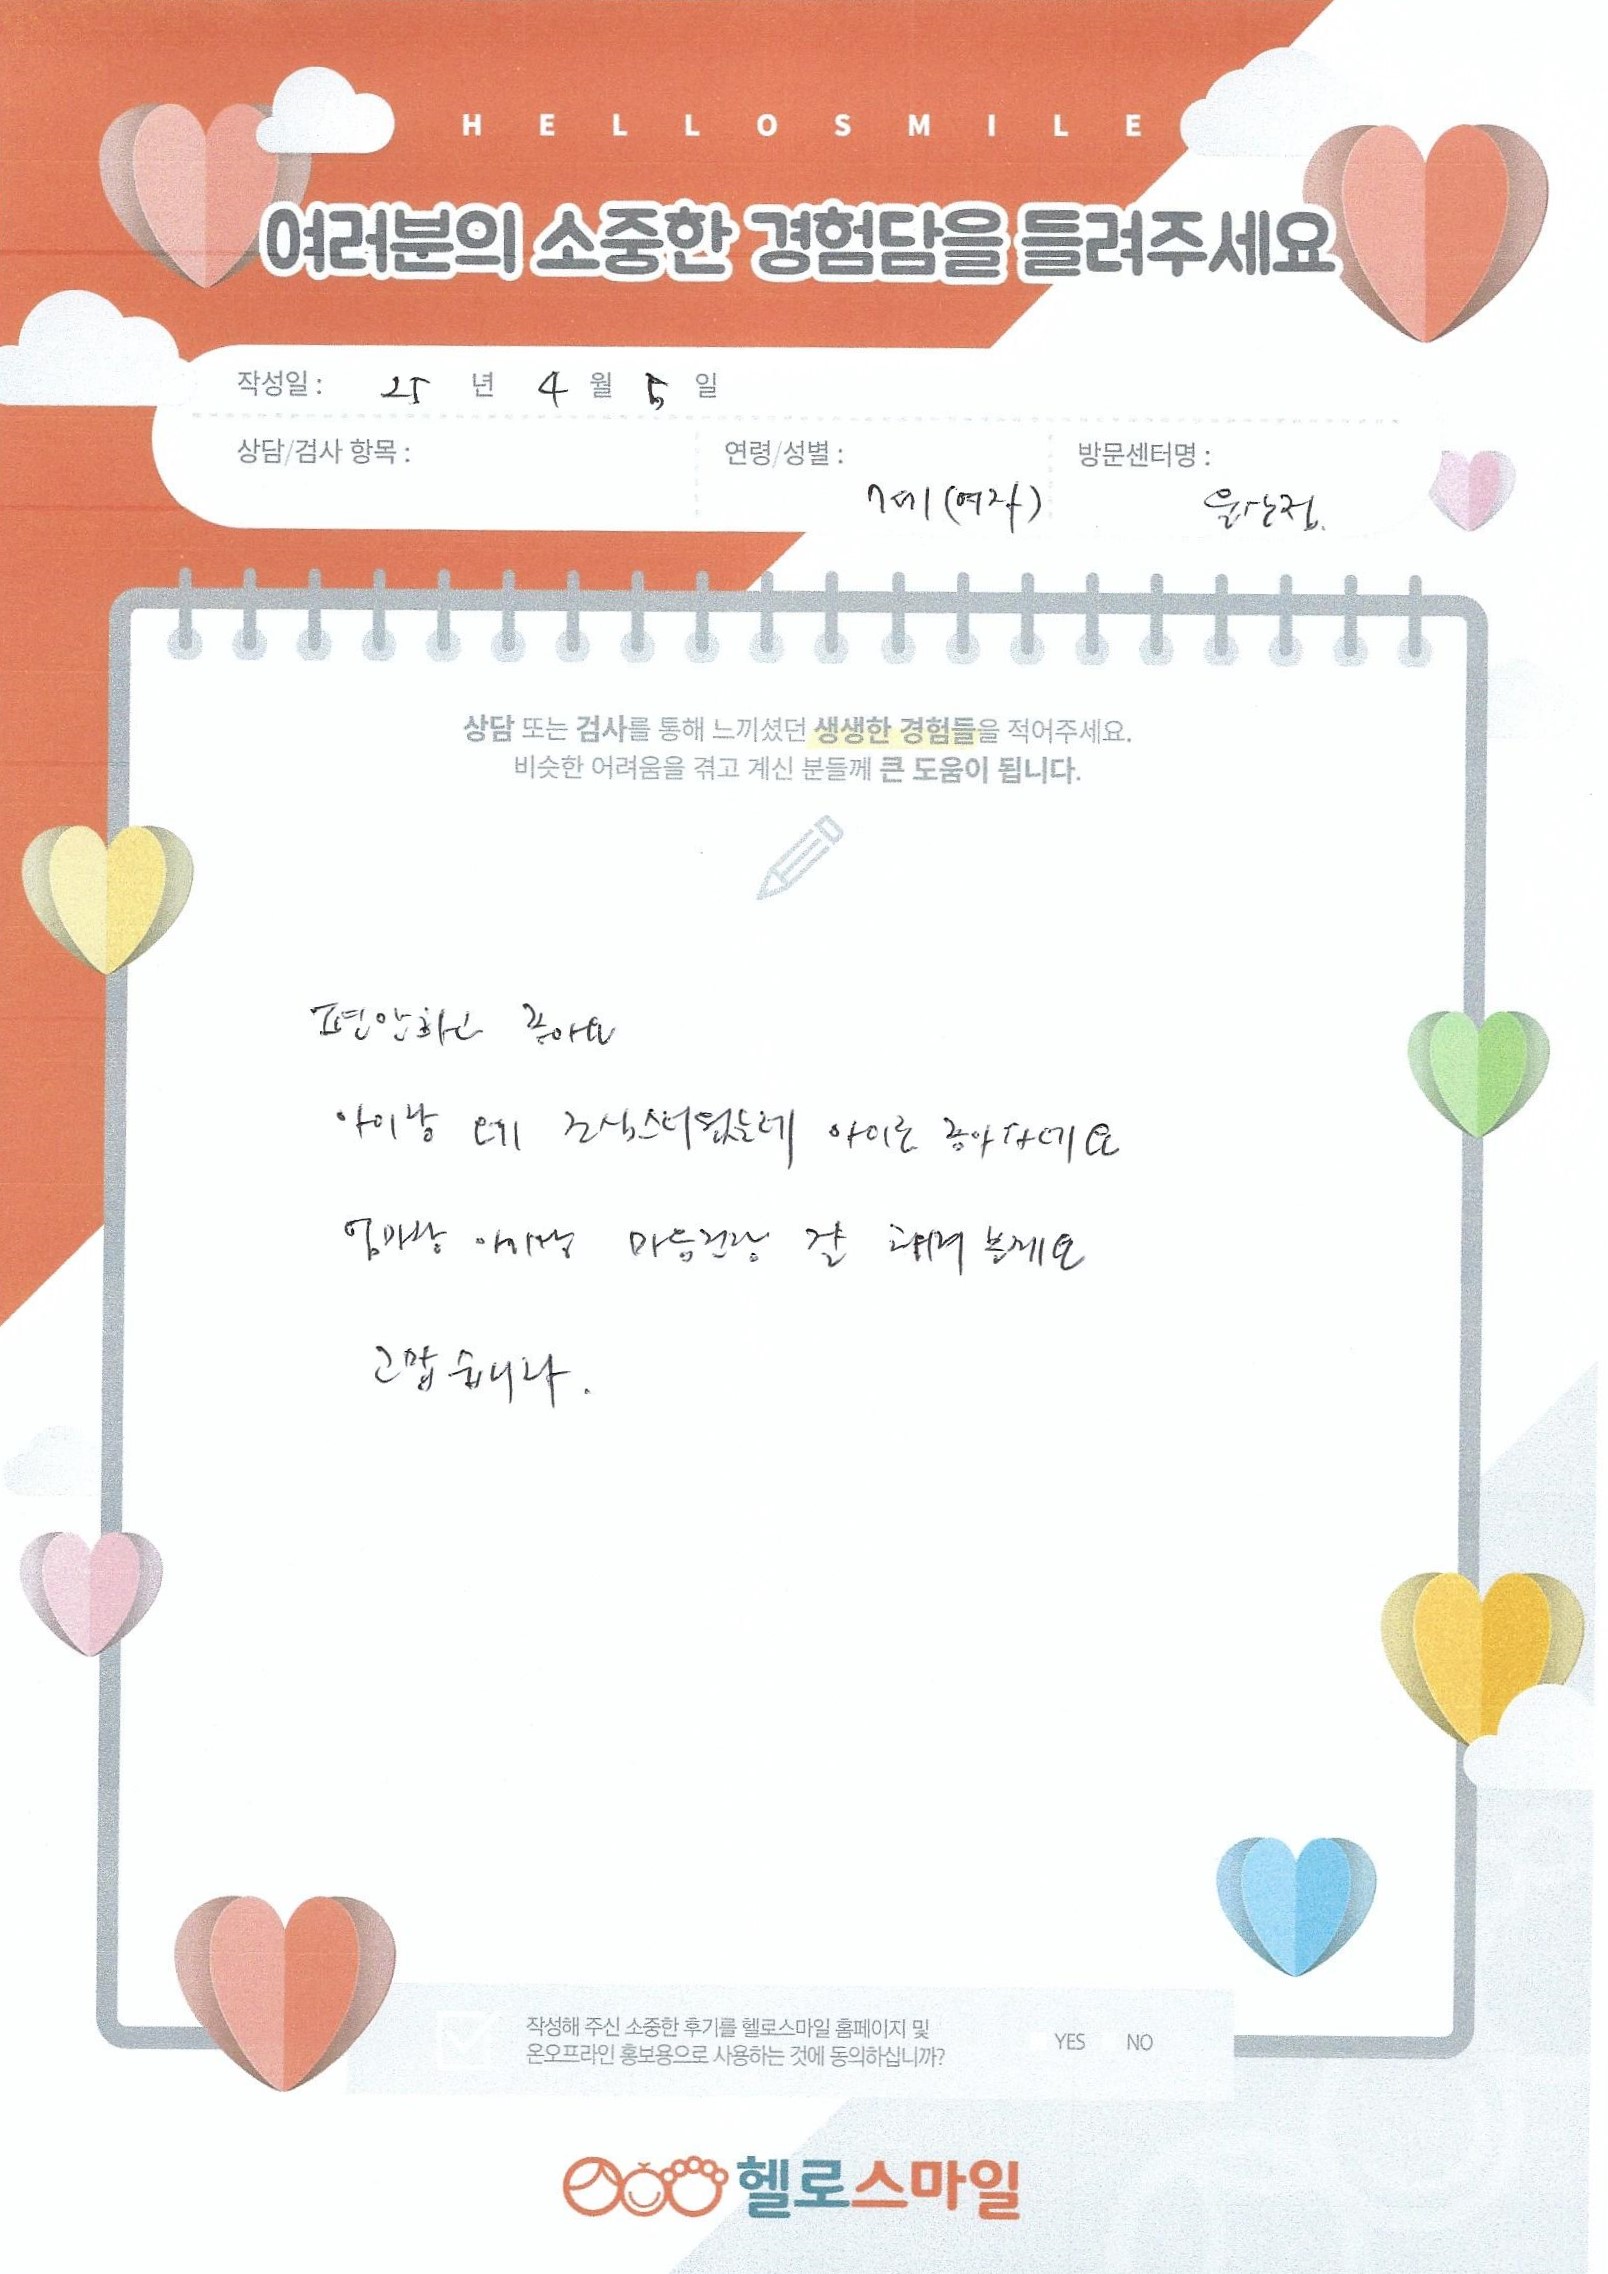 HELLOSMILE
여러분의 소중한 경험담을 들려주세요
작성일 : 25 년 4 월 5 일
상담/검사 항목 : 연령/성별 : 방문센터명 :
7세 (여자)
상담 또는 검사를 통해 느끼셨던 생생한 경험들을 적어주세요.
비슷한 어려움을 겪고 계신 분들께 큰 도움이 됩니다.
편안하고 좋아요
아이랑 조심스러웠는데 아이도 좋아하네요
엄마랑 아이랑 마음건강 잘 챙겨 볼게요
고맙습니다.
작성해 주신 소중한 후기를 헬로스마일 홈페이지 및
온오프라인 홍보용으로 사용하는 것에 동의하십니까? YES NO
헬로스마일